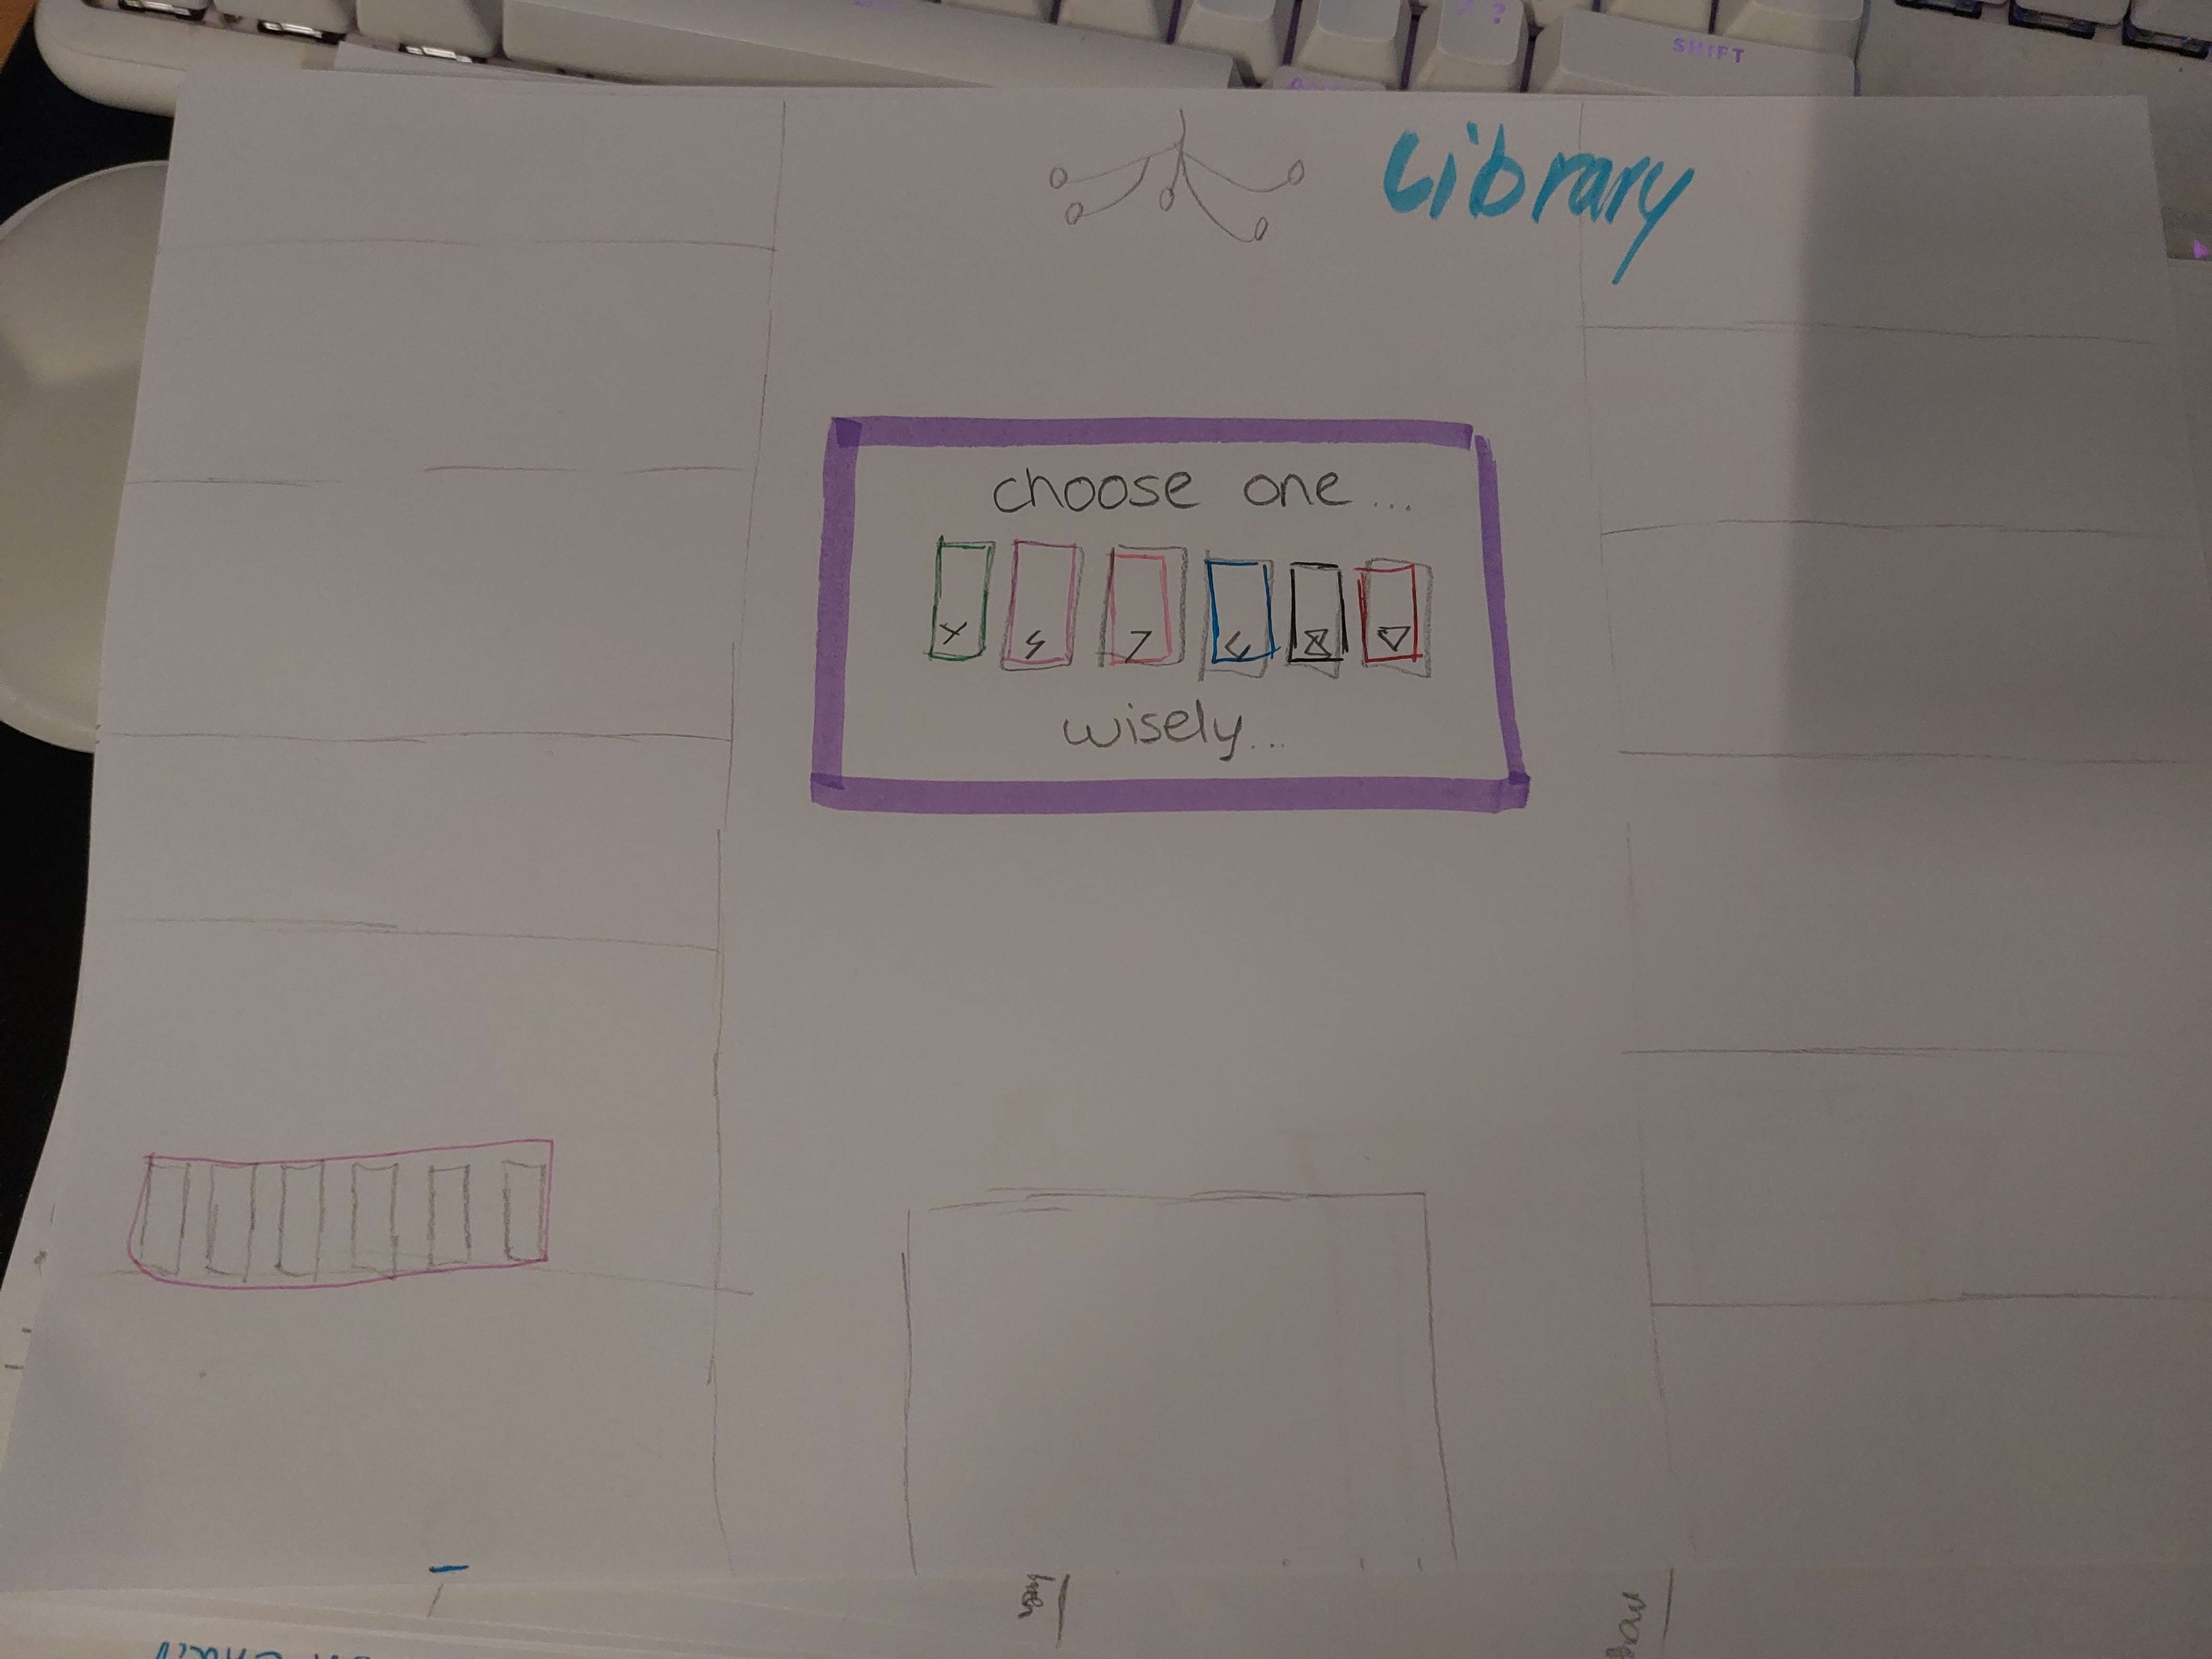 SHIFT
?
/
Library
choose one...
wisely...